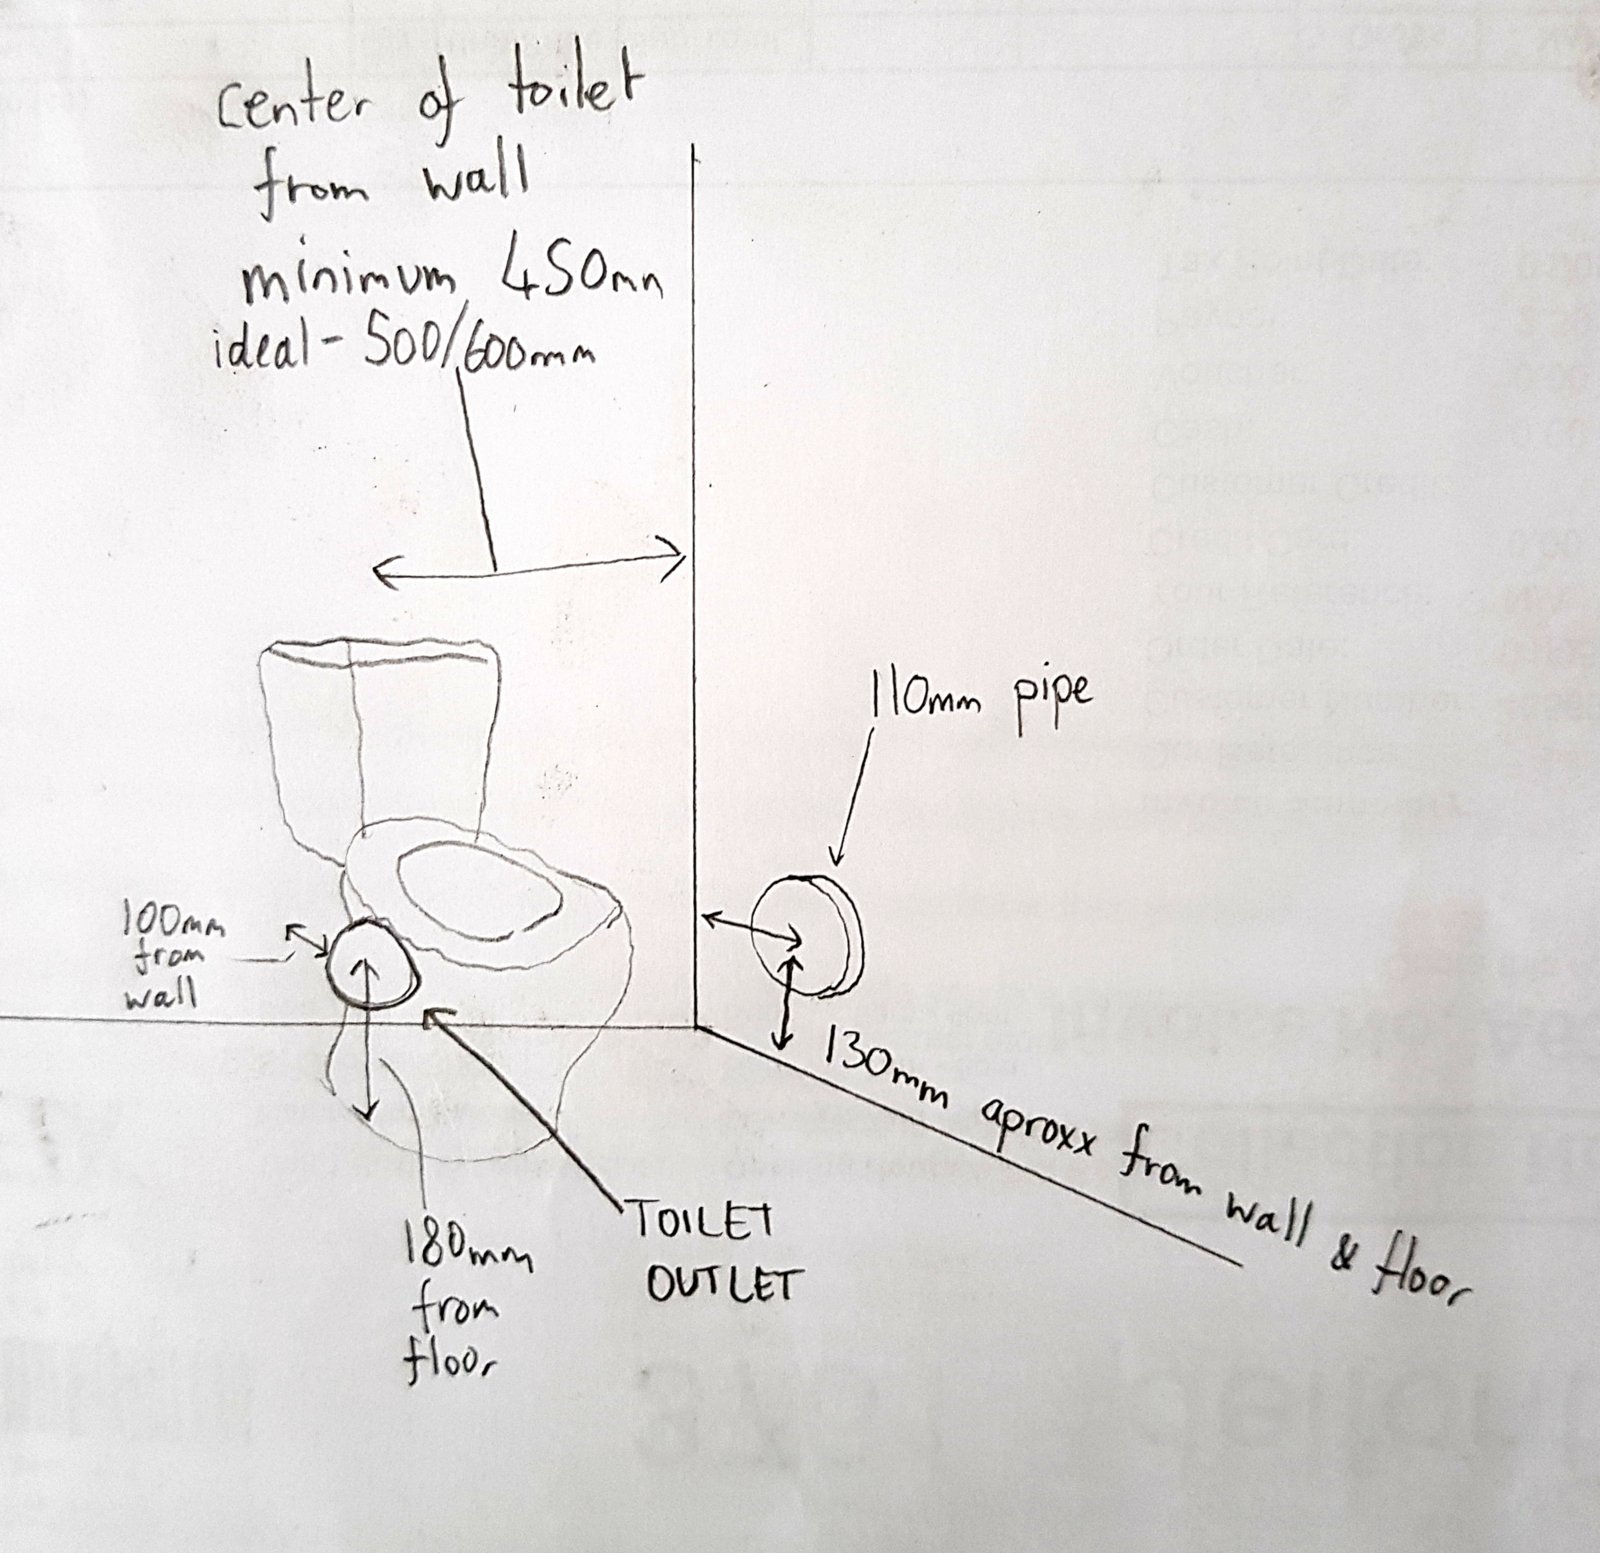 center of toilet
from wall
minimum 450mm
ideal - 500/600mm
110mm pipe
100mm
from
wall
130mm aproxx from wall & floor
TOILET
OUTLET
180mm
from
floor